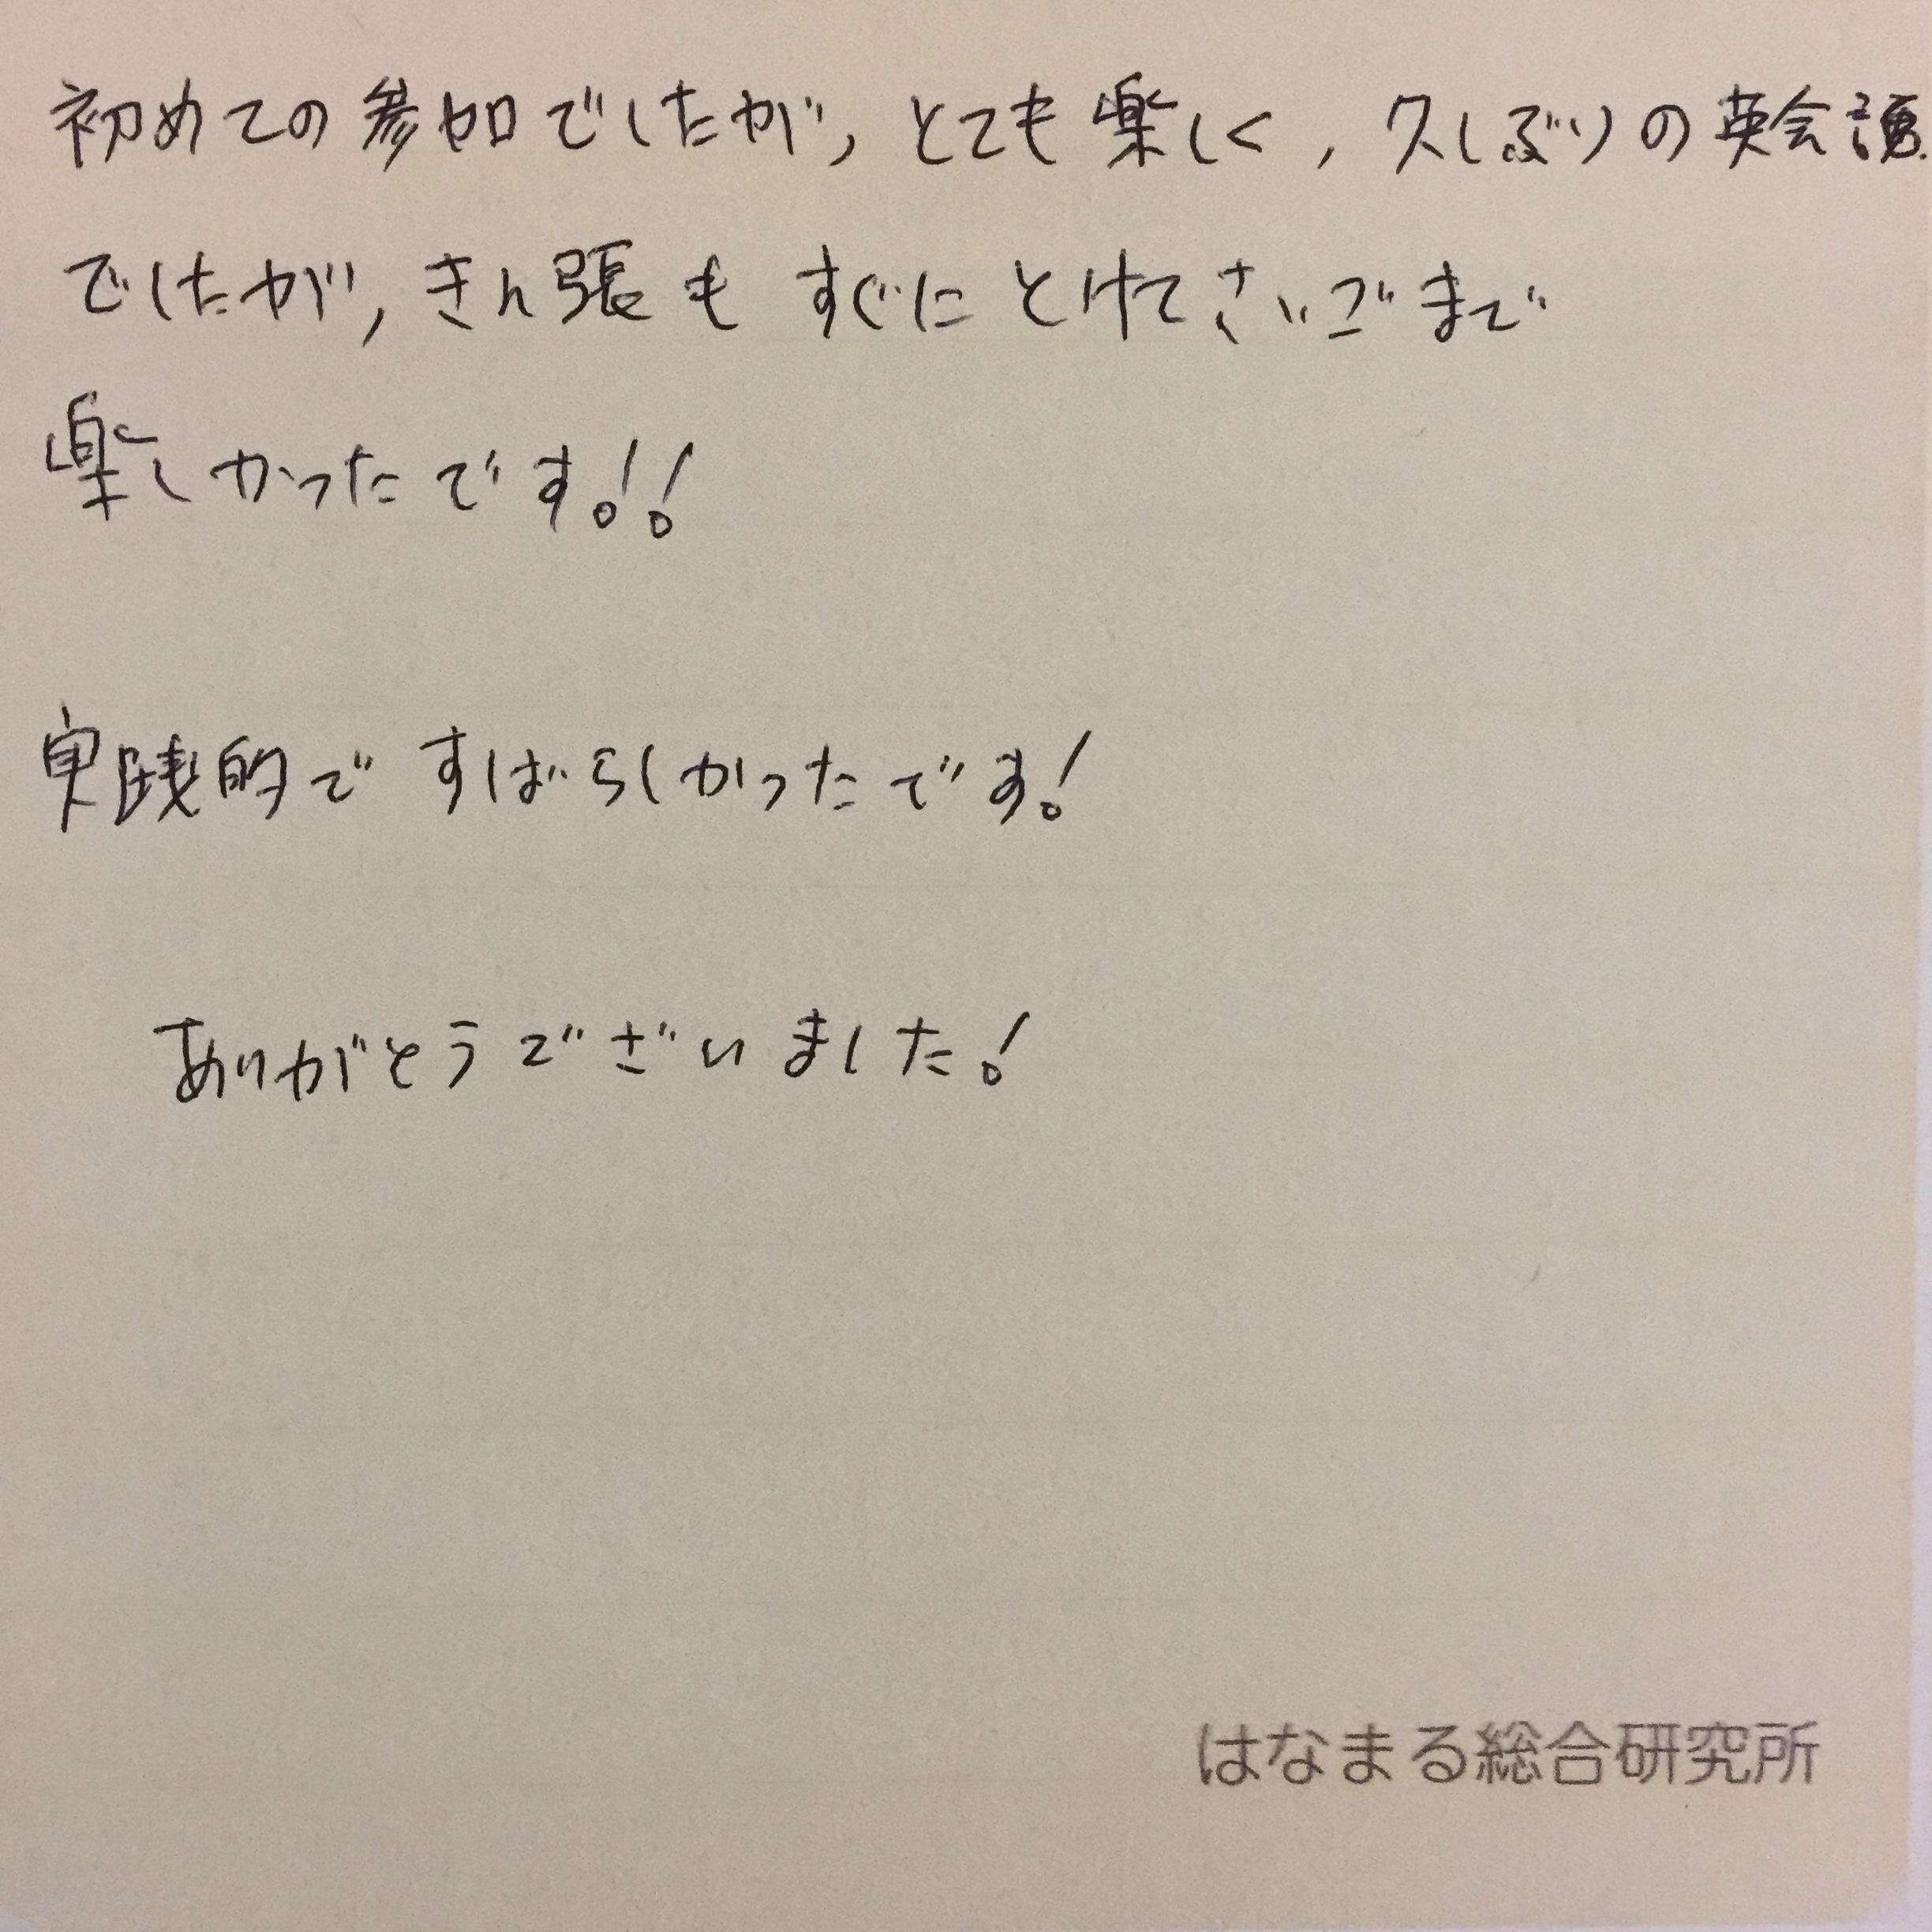 初めての参加でしたが, とても楽しく, 久しぶりの英会話
でしたが, きん張もすぐにとけてさいごまで
楽しかったです!!
実践的ですばらしかったです!
ありがとうございました!
はなまる総合研究所